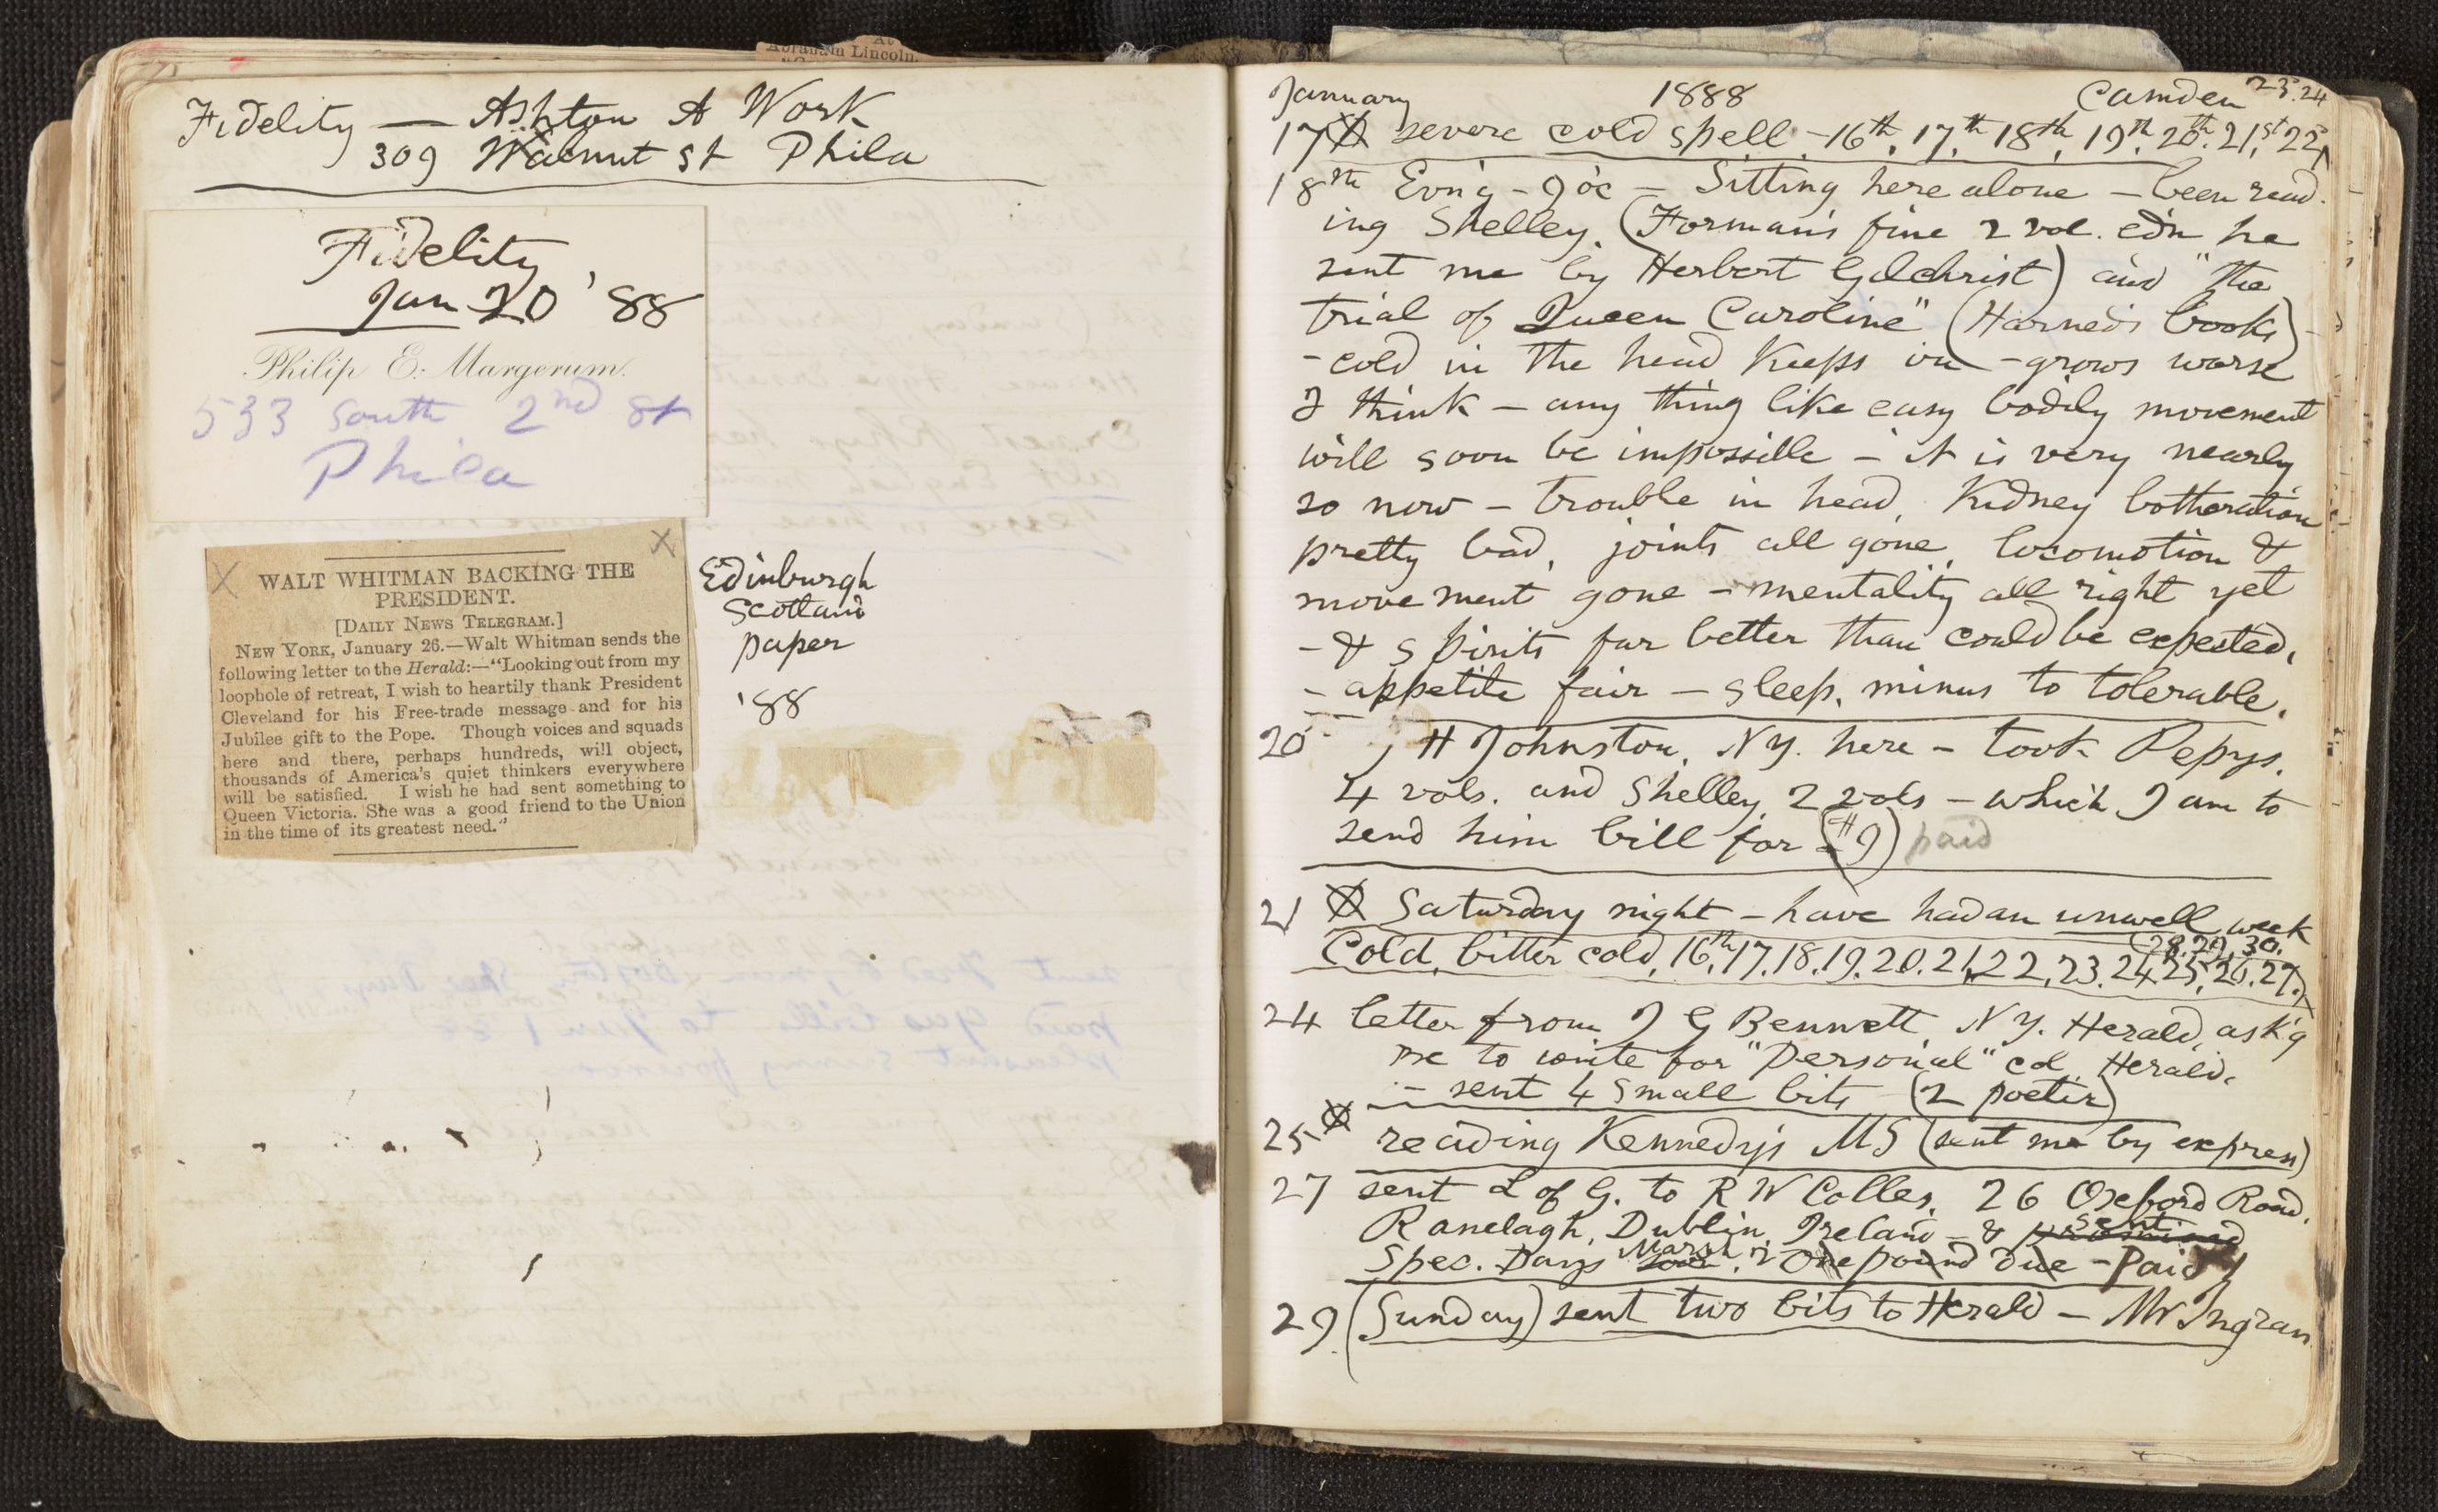 At
Abraham Lincoln.
Fidelity — Ashton A Work
309 Walnut st Phila
Fidelity
Jan 20 '88
Philip E. Margerum.
533 South 2nd St
Phila
X X
WALT WHITMAN BACKING THE
PRESIDENT.
[DAILY NEWS TELEGRAM.]
NEW YORK, January 26.—Walt Whitman sends the
following letter to the Herald:—"Looking out from my
loophole of retreat, I wish to heartily thank President
Cleveland for his Free-trade message and for his
Jubilee gift to the Pope. Though voices and squads
here and there, perhaps hundreds, will object,
thousands of America's quiet thinkers everywhere
will be satisfied. I wish he had sent something to
Queen Victoria. She was a good friend to the Union
in the time of its greatest need."
Edinburgh
Scotland
paper
'88
January 1888 Camden 23. 24
17 severe cold spell - 16th, 17th 18th, 19th, 20th, 21st, 22,
18th Evn'g - 9 o'c - Sitting here alone - been read
ing Shelley. (Forman's fine 2 vol. ed'n he
sent me by Herbert Gilchrist) and "the
trial of Queen Caroline" (Harned's books) -
- cold in the head keeps on - grows worse
I think - any thing like easy bodily movement
will soon be impossible - it is very nearly
so now - trouble in head, kidney botheration
pretty bad, joints all gone, locomotion &
movement gone - mentality all right yet
- & spirits far better than could be expected,
- appetite fair - sleep, minus to tolerable.
20 J H Johnston, N Y. here - took Pepys,
4 vols. and Shelley, 2 vols - which I am to
send him bill for ($9) paid
21 Saturday night - have had an unwell week
Cold, bitter cold, 16th, 17, 18, 19, 20, 21, 22, 23, 24, 25, 26, 27, (28, 29, 30.
24 letter from J G Bennett N Y. Herald, ask'g
me to write for "personal" col. Herald.
- sent 4 small bits (2 poetic)
25 reading Kennedy's MS (sent me by express)
27 sent L of G. to R W Colles, 26 Oxford Road,
Ranelagh, Dublin, Ireland - & promised sent
Spec. Days soon March 2 One pound due - Paid
29 (Sunday) sent two bits to Herald - Mr Ingram